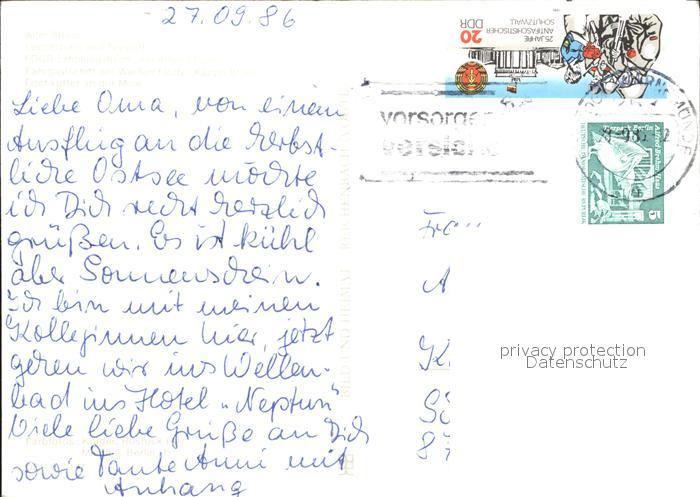 27.09.86
Liebe Oma, von einem
Ausflug an die herbst-
liche Ostsee möchte
ich Dich recht herzlich
grüßen. Es ist kühl
aber Sonnenschein.
Ich bin mit meinen
Kolleginnen hier, jetzt
gehen wir ins Wellen-
bad ins Hotel „Neptun"
Viele liebe Grüße an Dich
sowie Tante Anni mit
Anhang
BILD UND HEIMAT
25 JAHRE
ANTIFASCHISTISCHER
SCHUTZWALL
DDR
20
vorsorge
Tierpark Berlin
5
Fra
A
K
87
privacy protection
Datenschutz